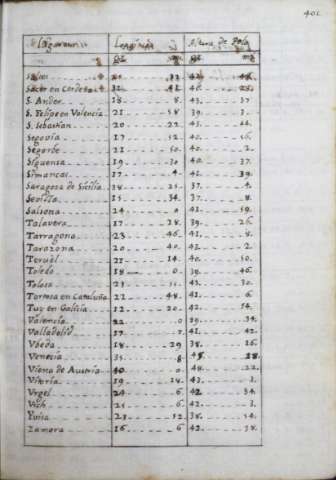 401.
Lugares Longitud Altura de Polo
gr. m. gr. m.
Sacer en Cerdeña
S. Ander 18 8. 43. 37.
S. Felipe en Valencia 21 58 39. 3.
S. Sebastian 20 22 43.
Segovia 17 52 40.
Segorbe 21 50. 40. 2.
Siguensa 19 30 40. 37.
Simancas 17 4. 41. 39.
Saragosa de Sicilia 38 25. 37. 4.
Sevilla 15 34. 37. 8.
Salsona 24 0 41. 59.
Talavera 17 28. 39. 26
Tarragona 23 46. 41. 8.
Tarazona 20 40. 41. 2.
Teruel 21 14. 40. 50.
Toledo 18 0. 39. 46.
Tolosa 23 43. 30.
Tortosa en Cataluña 22 48. 41. 6.
Tuy en Galisia 12 20. 42. 14.
Valencia 22 0 39. 34.
Valladolid 17 7 41. 42.
Vbeda 18 29 38. 16.
Venecia 35 8 45. 18.
Viena de Austria 40 0 48. 22.
Vitoria 19 18. 43. 3.
Vrgel 24 6. 42. 34.
Vich 25 6 42. 3.
Yvisa 23 12 38. 54.
Zamora 16 6 42. 38.